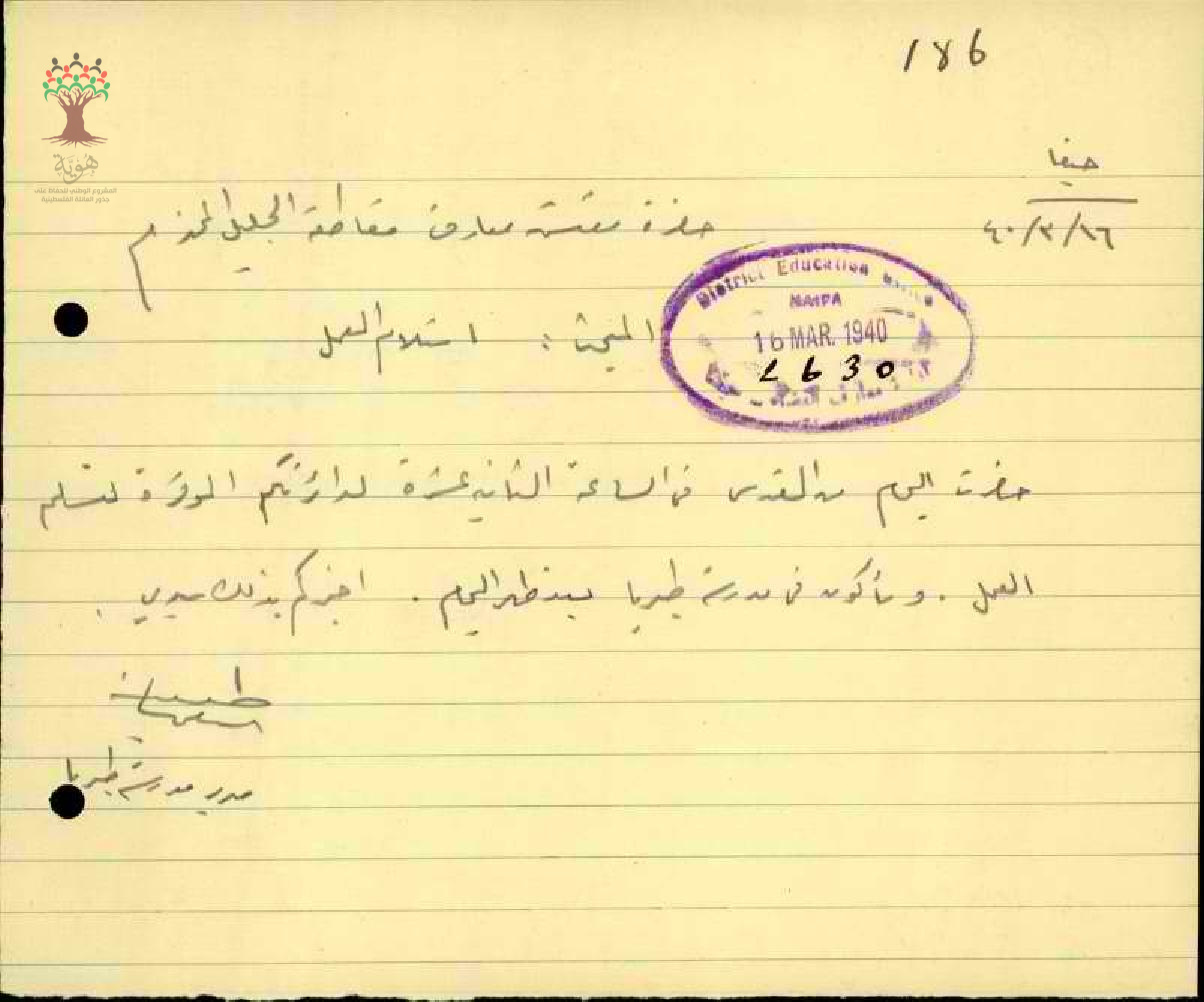 186
هُوِيَّة
المشروع الوطني للحفاظ على
جذور العائلة الفلسطينية
حيفا
١٦/٣/٤٠
حضرة مفتش معارف مقاطعة الجليل المحترم
District Education Office
HAIFA
16 MAR. 1940
2630
معارف حيفا
المبحث : استلام العمل
حضرت اليوم من القدس في الساعة الثانية عشرة لدائرتكم الموقرة لتسلم
العمل . وسأكون في مدرسة طبريا بعد ظهر اليوم . اخبركم بذلك سيدي .
مدير مدرسة طبريا